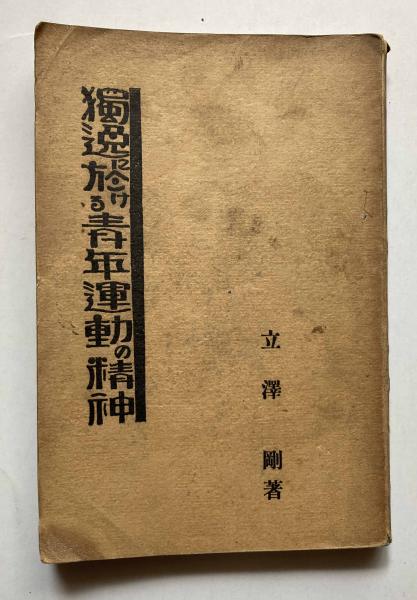 獨逸に於ける青年運動の精神
立澤 剛著